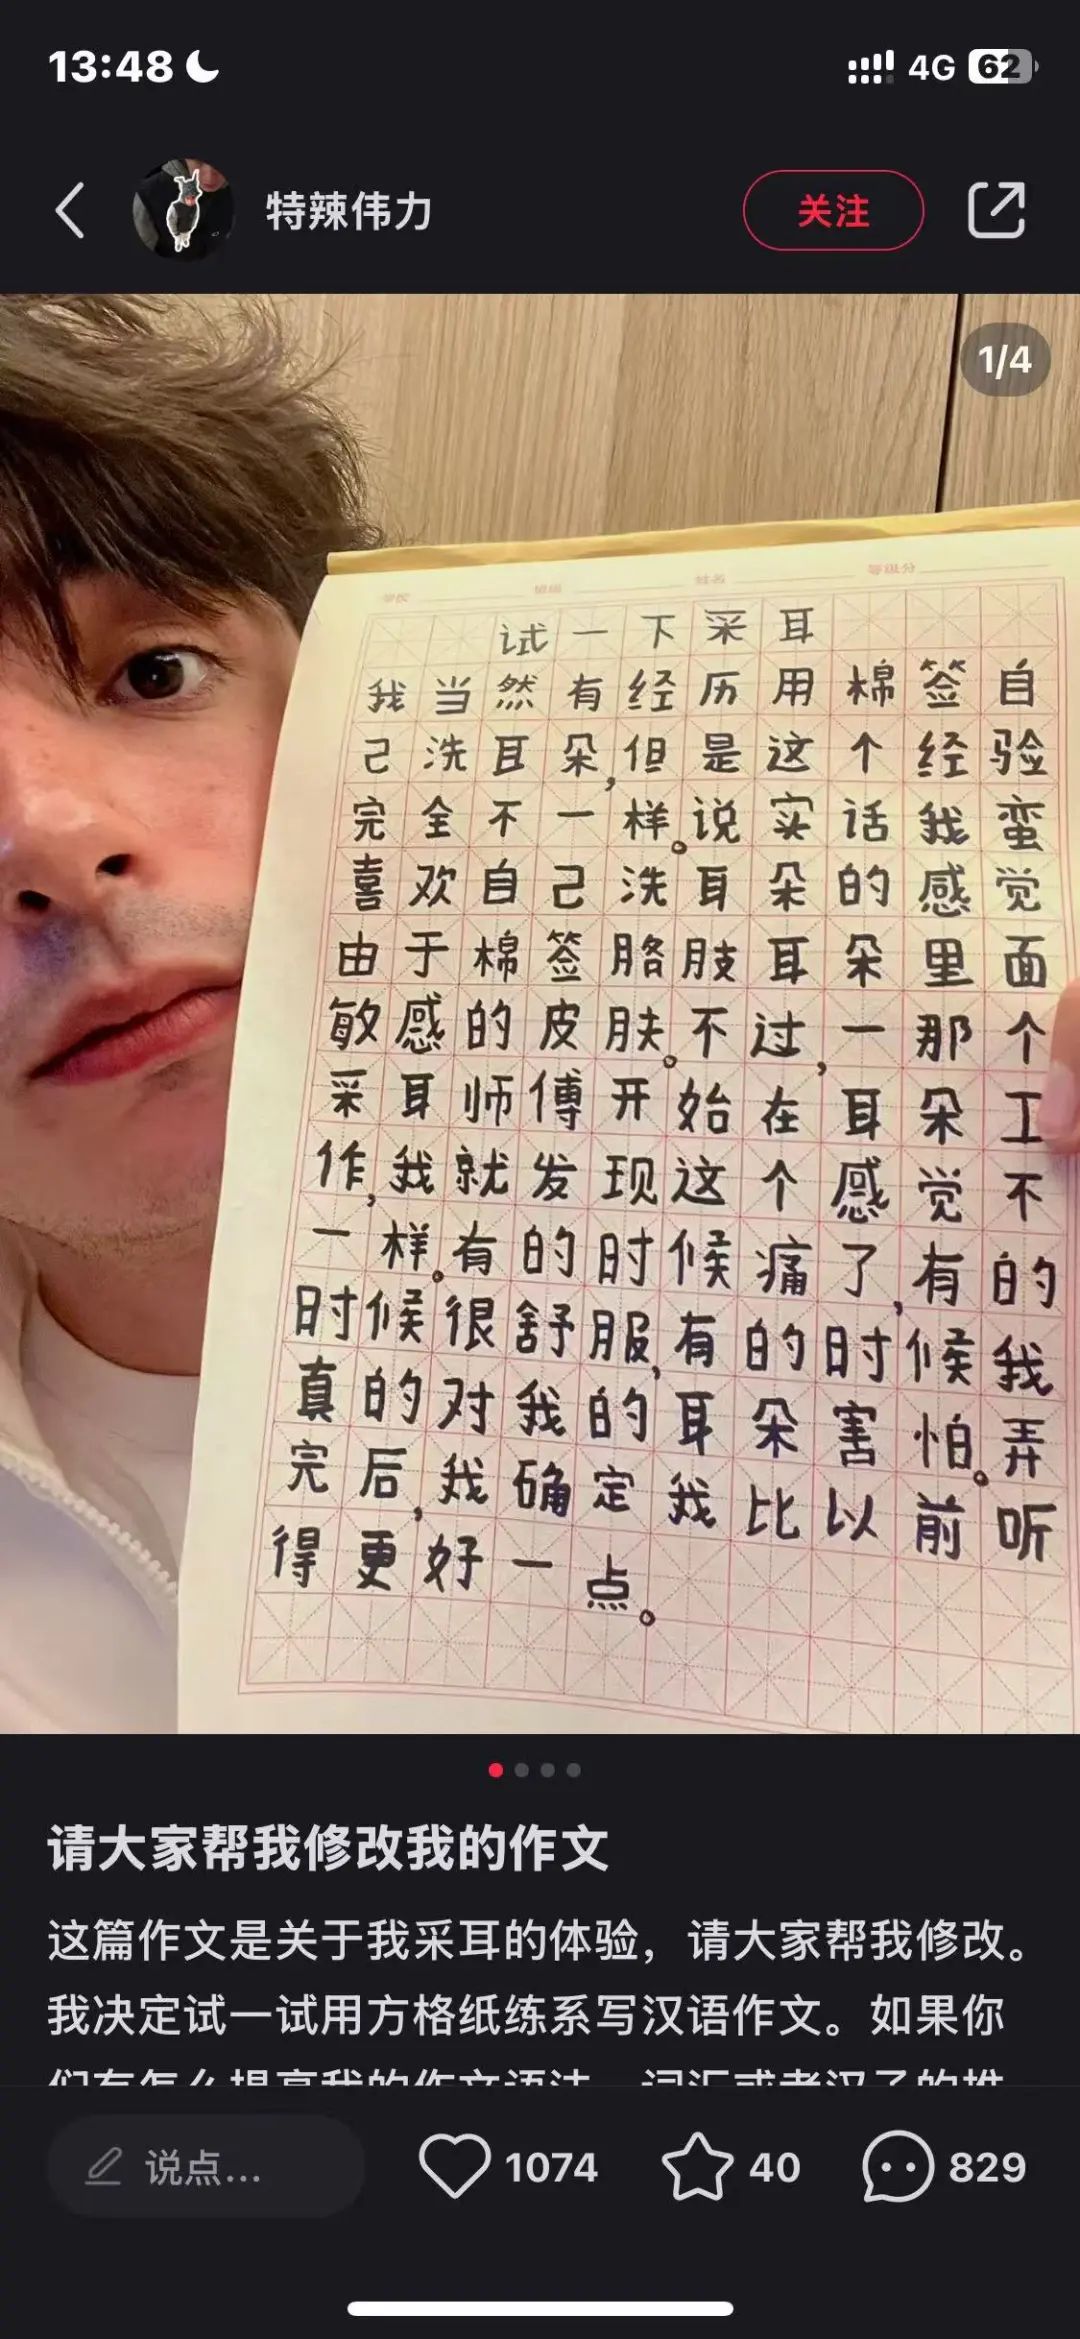 13:48
4G 62
特辣伟力
关注
1/4
姓名
等级分
试一下采耳
我当然有经历用棉签自
己洗耳朵,但是这个经验
完全不一样。说实话我蛮
喜欢自己洗耳朵的感觉
由于棉签胳肢耳朵里面
敏感的皮肤。不过,一那个
采耳师傅开始在耳朵工
作,我就发现这个感觉不
一样。有的时候痛了,有的
时候很舒服,有的时候我
真的对我的耳朵害怕。弄
完后,我确定我比以前听
得更好一点。
请大家帮我修改我的作文
这篇作文是关于我采耳的体验，请大家帮我修改。
我决定试一试用方格纸练系写汉语作文。如果你
说点...
1074
40
829